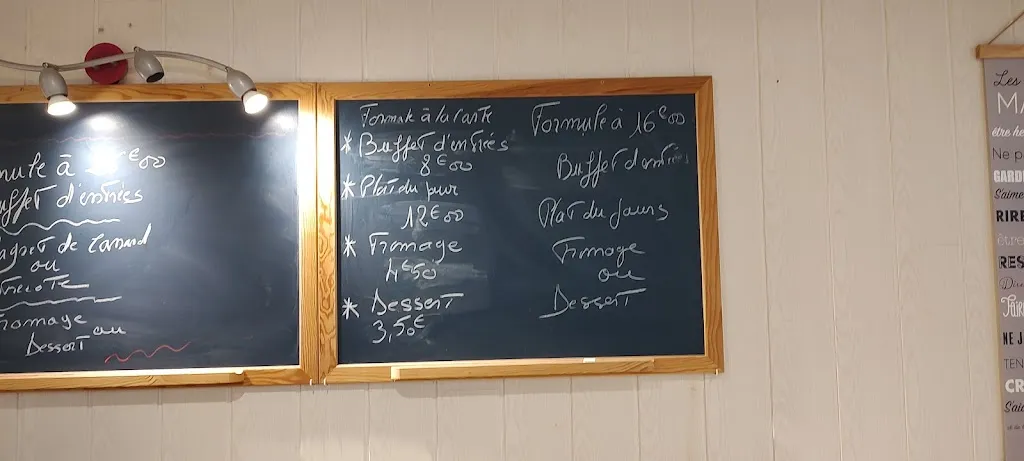 mule à €00
uffet d'entrées
agret de Canard
ou
trecote
Fromage
ou
Dessert
Formule à la Carte
* Buffet d'entrées
8€00
* Plat du jour
12€00
* Fromage
4€50
* Dessert
3,50€
Formule à 16€00
Buffet d'entrées
Plat du Jours
Fromage
ou
Dessert
Les
MA
être he
Ne p
GARD
S'aime
RIRE
être
RES
Dire
NE J
TEN
CR
S'aid